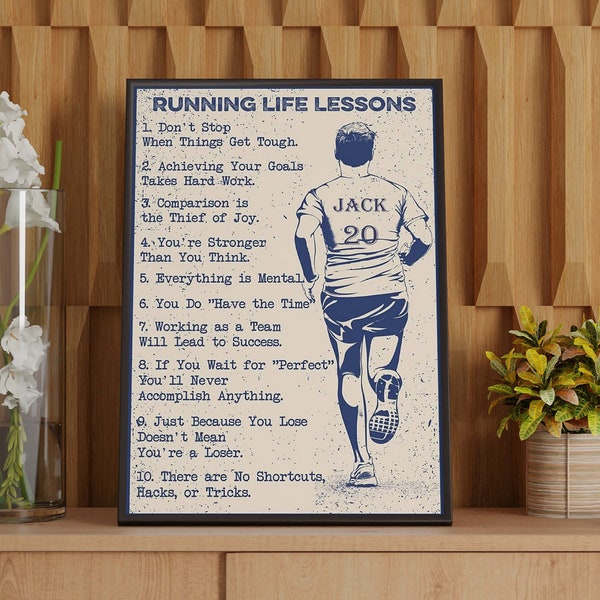 RUNNING LIFE LESSONS
1. Don't Stop
When Things Get Tough.
2. Achieving Your Goals
Takes Hard Work.
3. Comparison is
the Thief of Joy.
4. You're Stronger
Than You Think.
5. Everything is Mental.
6. You Do "Have the Time"
7. Working as a Team
Will Lead to Success.
8. If You Wait for "Perfect"
You'll Never
Accomplish Anything.
9. Just Because You Lose
Doesn't Mean
You're a Loser.
10. There are No Shortcuts,
Hacks, or Tricks.
JACK
20